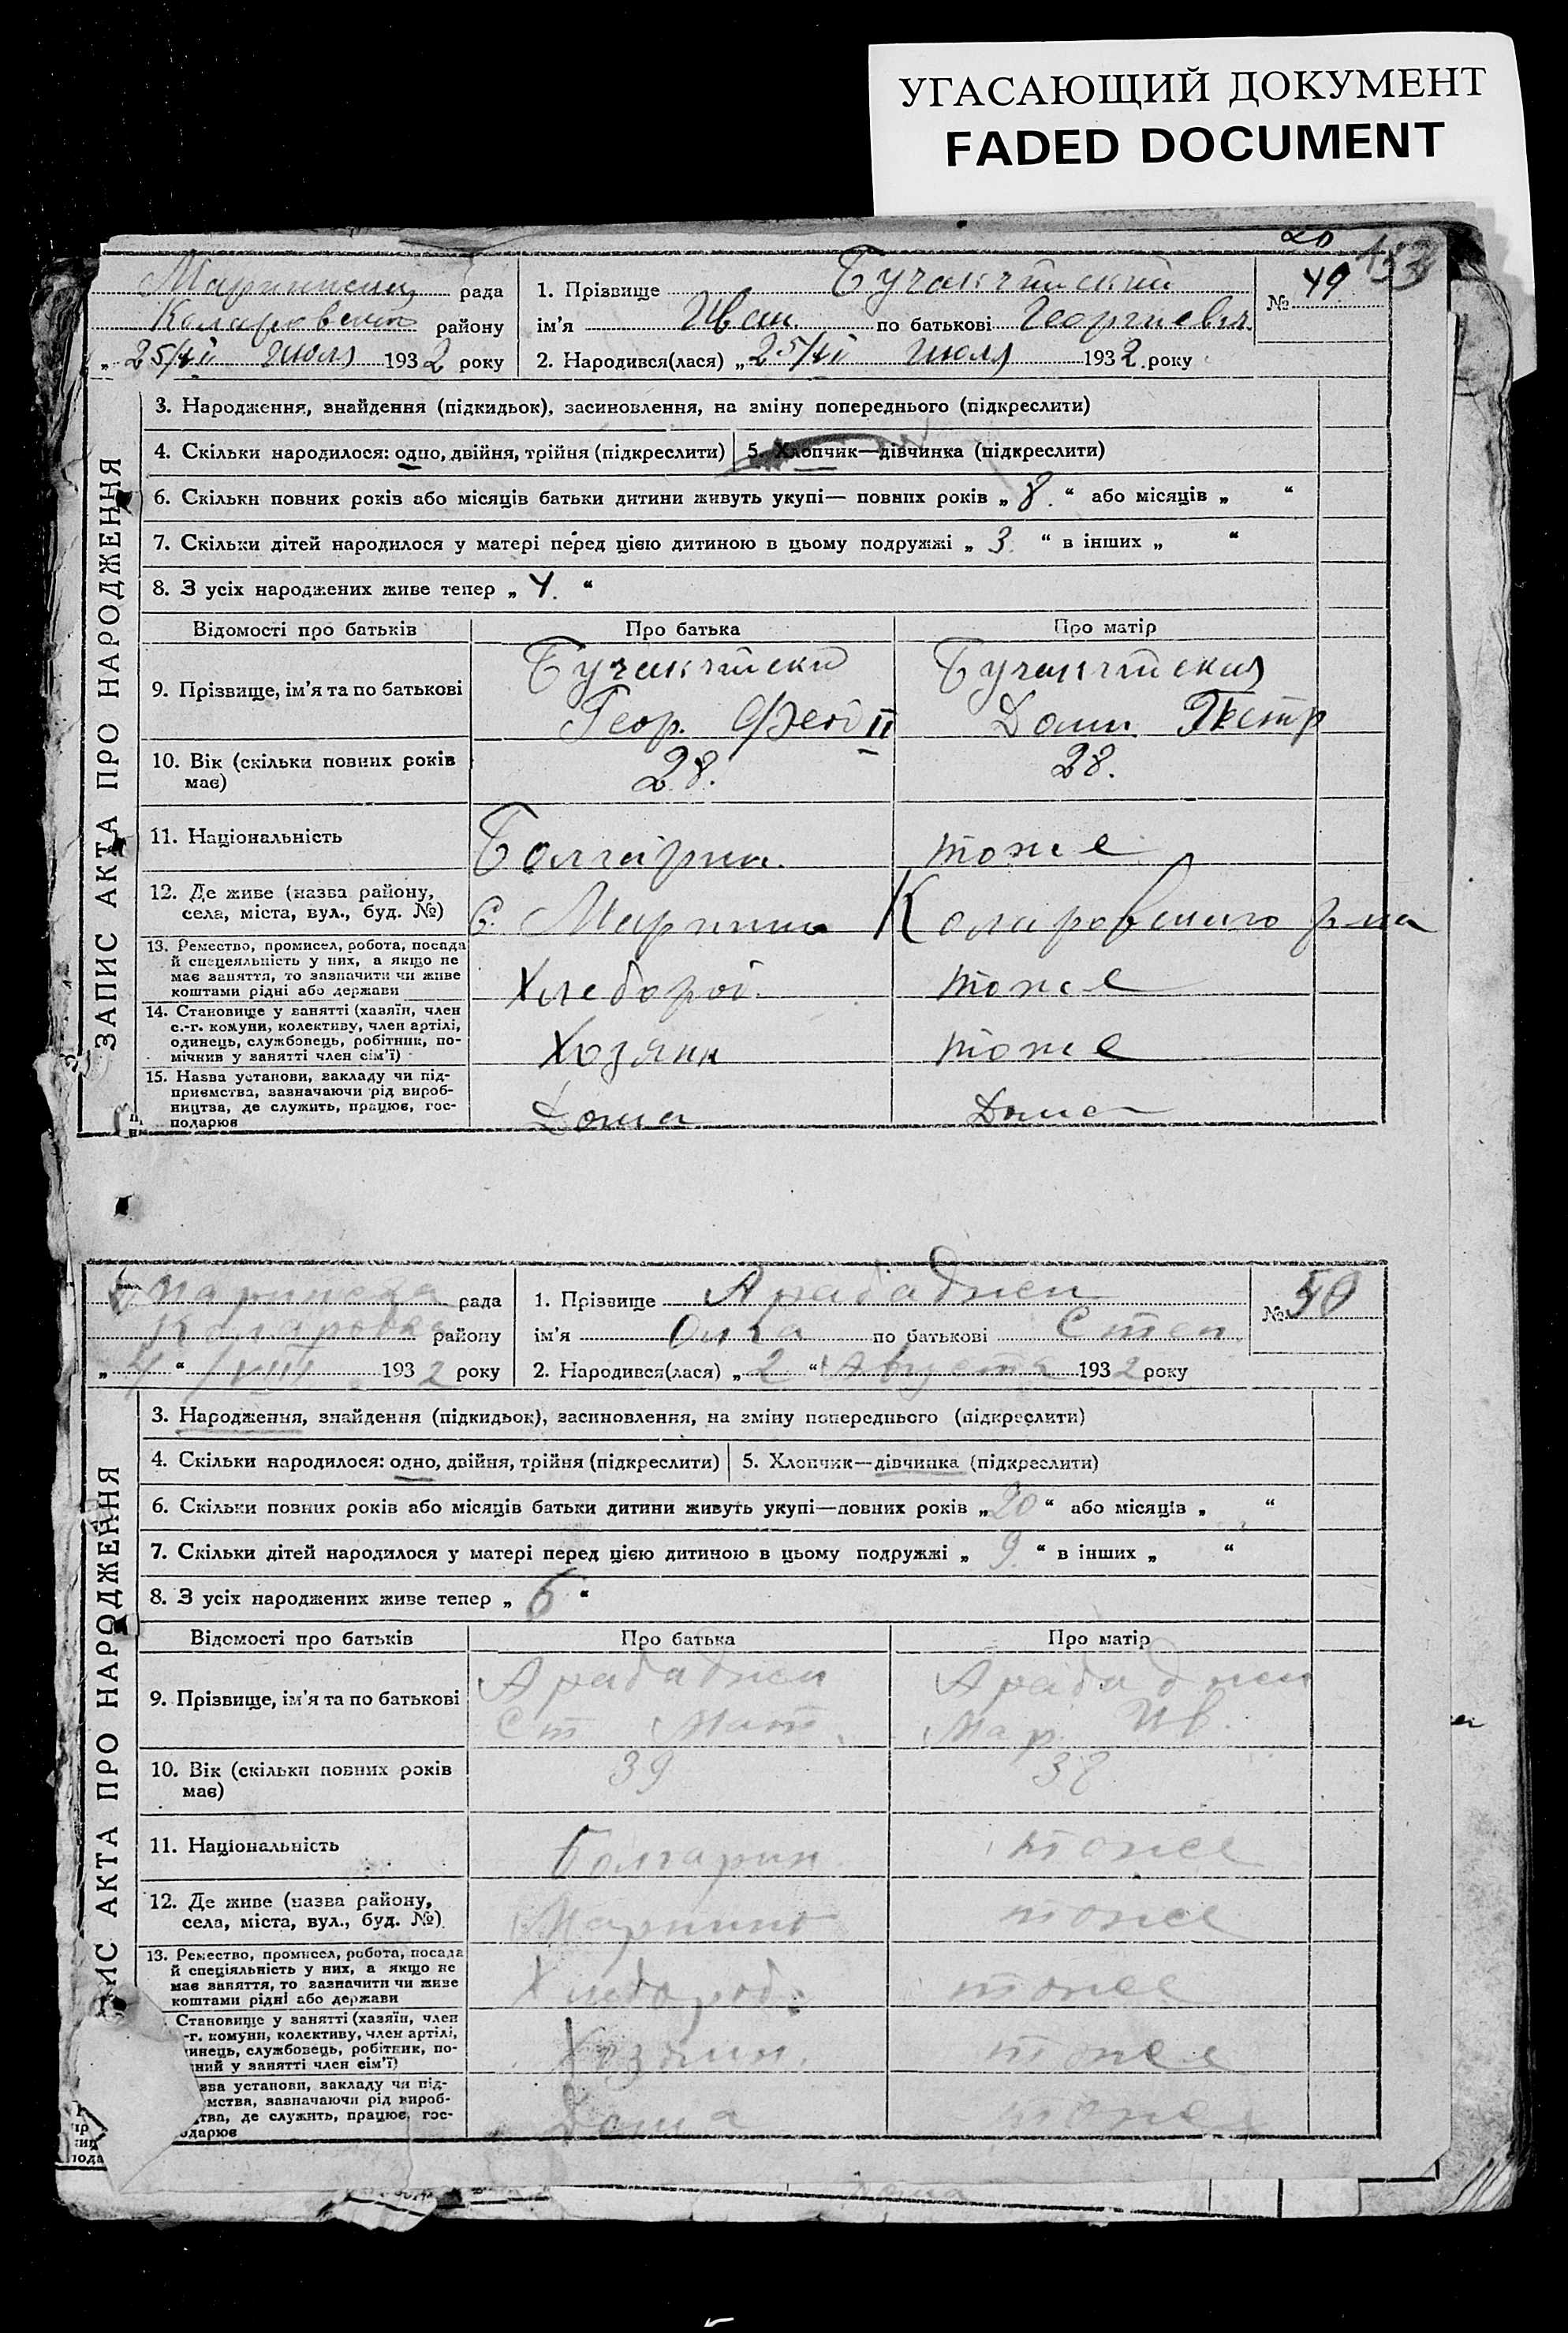 УГАСАЮЩИЙ ДОКУМЕНТ
FADED DOCUMENT
20
49
рада
району
„ июля 1932 року
1. Прізвище
ім'я Иван по батькові Георгиевич
2. Народився(лася) „ июля 1932 року
№ 49
ЗАПИС АКТА ПРО НАРОДЖЕННЯ
3. Народження, знайдення (підкидьок), засиновлення, на зміну попереднього (підкреслити)
4. Скільки народилося: одно, двійня, трійня (підкреслити)
5. Хлопчик—дівчинка (підкреслити)
6. Скільки повних років або місяців батьки дитини живуть укупі— повних років „ 8. “ або місяців „ “
7. Скільки дітей народилося у матері перед цією дитиною в цьому подружжі „ 3. “ в інших „ “
8. З усіх народжених живе тепер „ 4. “
Відомості про батьків
Про батька
Про матір
9. Прізвище, ім'я та по батькові
Геор.
10. Вік (скільки повних років має)
28.
28.
11. Національність
Болгарин.
тоже
12. Де живе (назва району, села, міста, вул., буд. №)
с. Марино Коларовского р-на
13. Ремество, промисел, робота, посада й спецеяльність у них, а якщо не має заняття, то зазначити чи живе коштами рідні або держави
Хлебороб.
тоже
14. Становище у занятті (хазяїн, член с.-г. комуни, колективу, член артілі, одинець, службовець, робітник, помічник у занятті член сім'ї)
Хозяин
тоже
15. Назва установи, закладу чи підприємства, зазначаючи рід виробництва, де служить, працює, господарює
Дома
Дома
рада
району
„ 4 “ /VIII 1932 року
1. Прізвище Арабаджи
ім'я Олга по батькові Степ.
2. Народився(лася) „ 2 “ Августа 1932 року
№ 50
АКТА ПРО НАРОДЖЕННЯ
3. Народження, знайдення (підкидьок), засиновлення, на зміну попереднього (підкреслити)
4. Скільки народилося: одно, двійня, трійня (підкреслити)
5. Хлопчик—дівчинка (підкреслити)
6. Скільки повних років або місяців батьки дитини живуть укупі—повних років „ 20 “ або місяців „ “
7. Скільки дітей народилося у матері перед цією дитиною в цьому подружжі „ 9 “ в інших „ “
8. З усіх народжених живе тепер „ 6 “
Відомості про батьків
Про батька
Про матір
9. Прізвище, ім'я та по батькові
Арабаджи
Ст
Арабаджи
Мар. Ив.
10. Вік (скільки повних років має)
39
38
11. Національність
Болгарин
тоже
12. Де живе (назва району, села, міста, вул., буд. №)
Марино
тоже
13. Ремество, промисел, робота, посада й спеціяльність у них, а якщо не має заняття, то зазначити чи живе коштами рідні або держави
Хлебороб.
тоже
Становище у занятті (хазяїн, член -г. комуни, колективу, член артілі, инець, службовець, робітник, по- ний у занятті член сім'ї)
Хозяин.
тоже
зва установи, закладу чи під- мства, зазначаючи рід вироб- тва, де служить, працює, гос- одарює
Дома
тоже